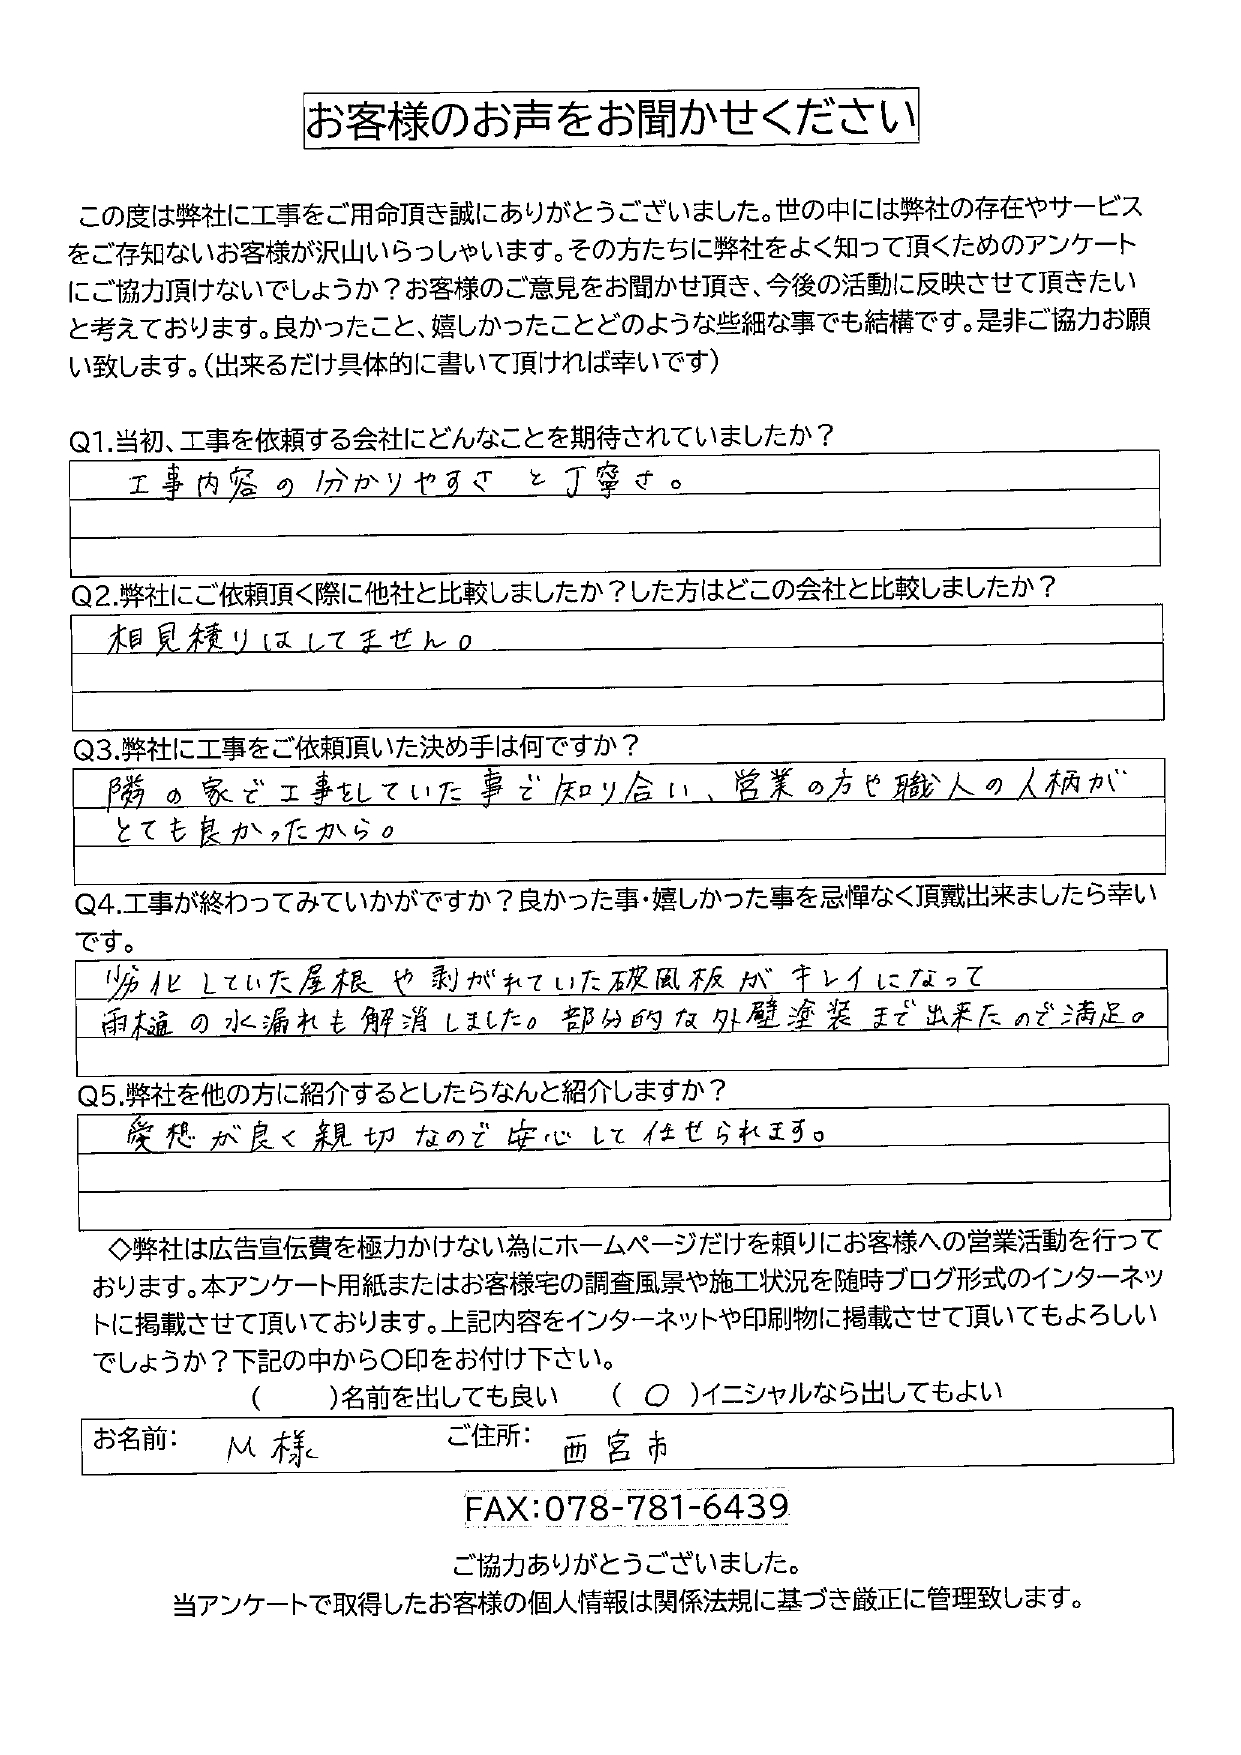 お客様のお声をお聞かせください
この度は弊社に工事をご用命頂き誠にありがとうございました。世の中には弊社の存在やサービス
をご存知ないお客様が沢山いらっしゃいます。その方たちに弊社をよく知って頂くためのアンケート
にご協力頂けないでしょうか？お客様のご意見をお聞かせ頂き、今後の活動に反映させて頂きたい
と考えております。良かったこと、嬉しかったことどのような些細な事でも結構です。是非ご協力お願
い致します。（出来るだけ具体的に書いて頂ければ幸いです）
Q1.当初、工事を依頼する会社にどんなことを期待されていましたか？
工事内容の分かりやすさと丁寧さ。
Q2.弊社にご依頼頂く際に他社と比較しましたか？した方はどこの会社と比較しましたか？
相見積りはしてません。
Q3.弊社に工事をご依頼頂いた決め手は何ですか？
隣の家で工事をしていた事で知り合い、営業の方や職人の人柄が
とても良かったから。
Q4.工事が終わってみていかがですか？良かった事・嬉しかった事を忌憚なく頂戴出来ましたら幸い
です。
劣化していた屋根や剥がれていた破風板がキレイになって
雨樋の水漏れも解消しました。部分的な外壁塗装まで出来たので満足。
Q5.弊社を他の方に紹介するとしたらなんと紹介しますか？
愛想が良く親切なので安心して任せられます。
◇弊社は広告宣伝費を極力かけない為にホームページだけを頼りにお客様への営業活動を行って
おります。本アンケート用紙またはお客様宅の調査風景や施工状況を随時ブログ形式のインターネッ
トに掲載させて頂いております。上記内容をインターネットや印刷物に掲載させて頂いてもよろしい
でしょうか？下記の中から〇印をお付け下さい。
（　　）名前を出しても良い　（ 〇 ）イニシャルなら出してもよい
お名前：　M様　ご住所：　西宮市
FAX：078-781-6439
ご協力ありがとうございました。
当アンケートで取得したお客様の個人情報は関係法規に基づき厳正に管理致します。